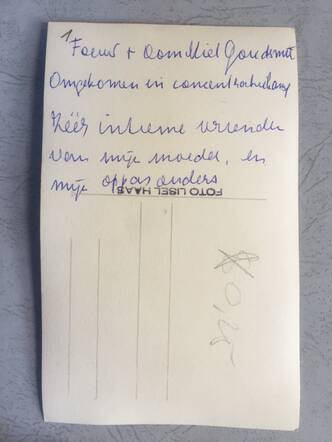 1 + oom Miel Goudsmit
Omgekomen in concentratiekamp
Zéér intieme vrienden
van mijn moeder, en
mijn oppas ouders
FOTO LISEL HAAS